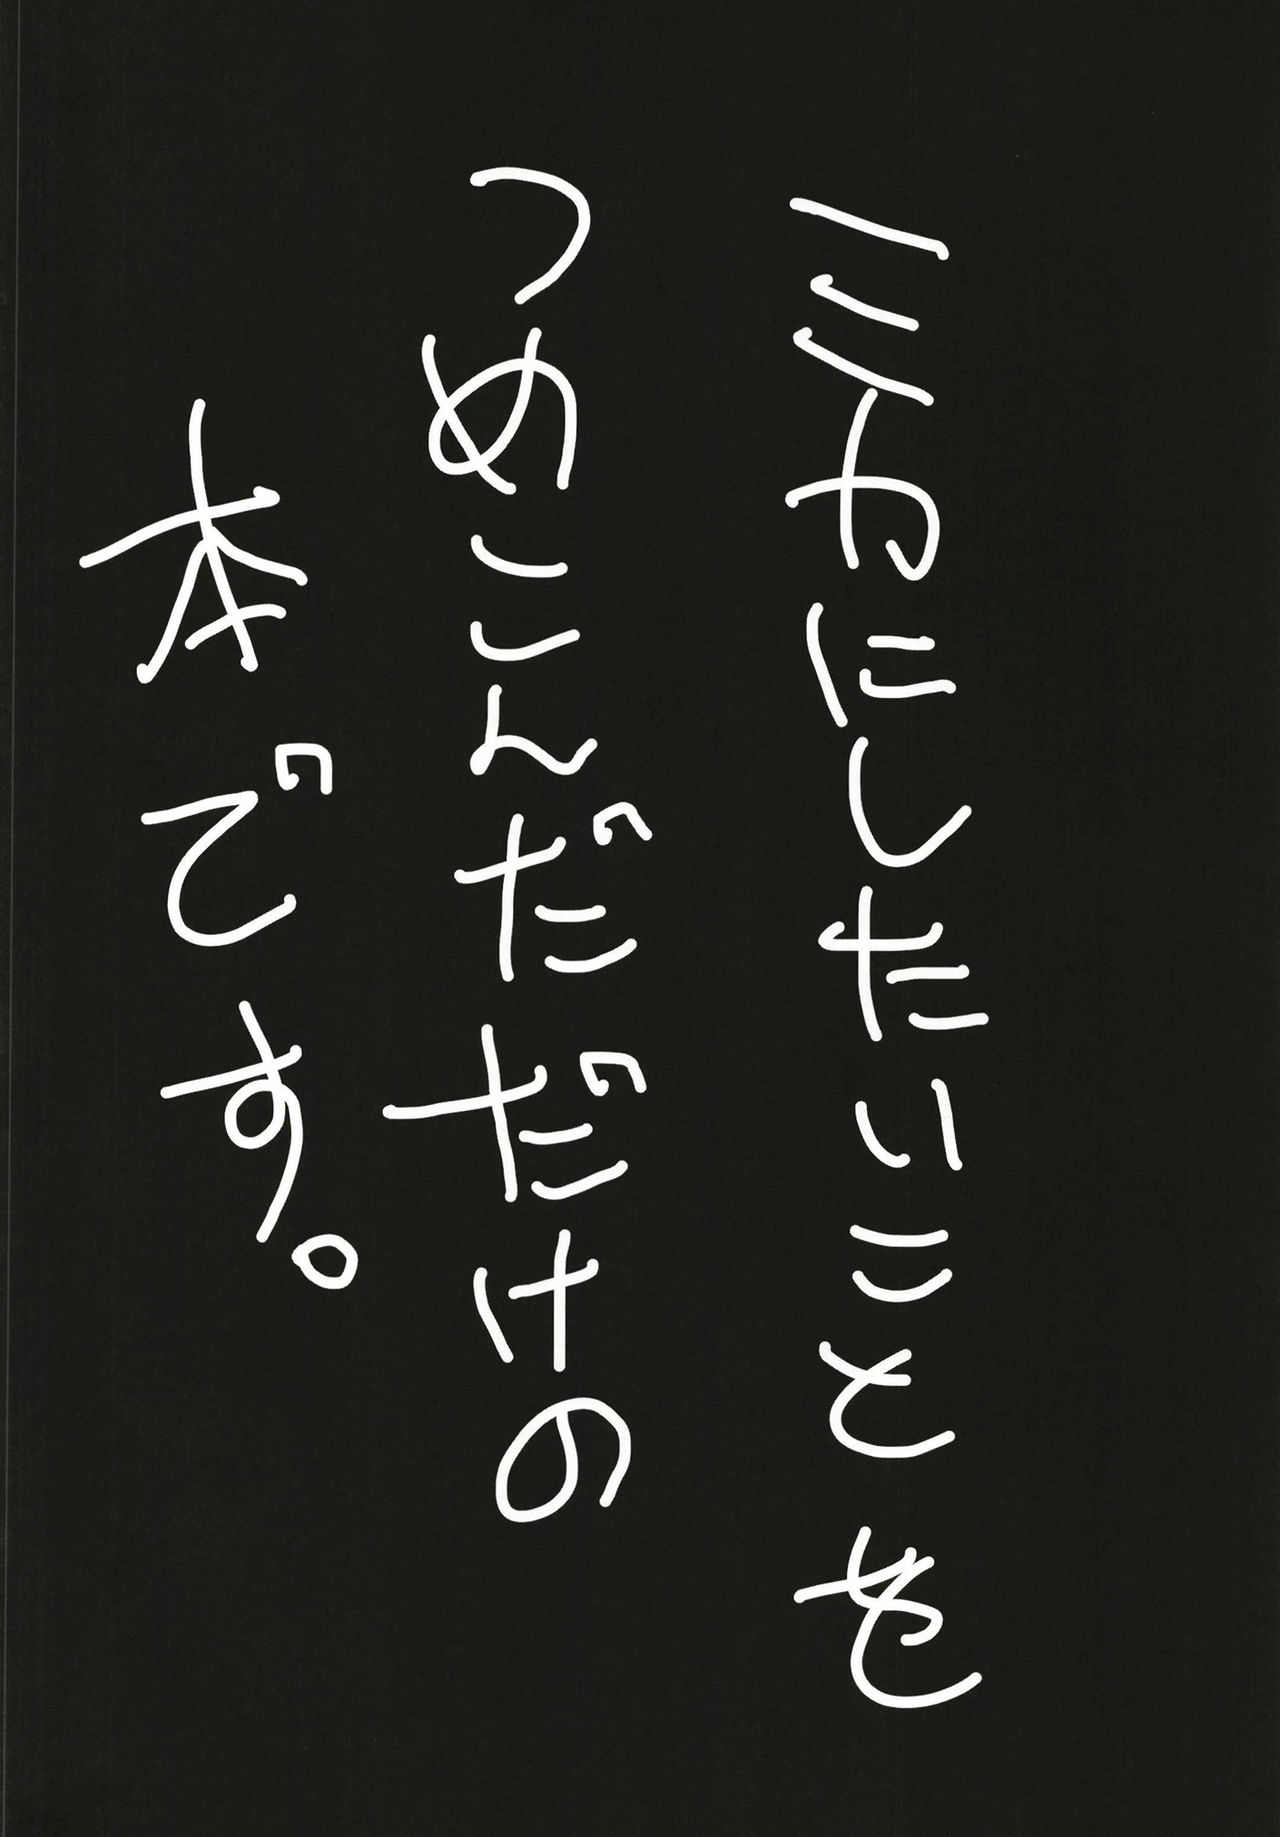 ミカにしたいことを
つめこんだだけの
本です。